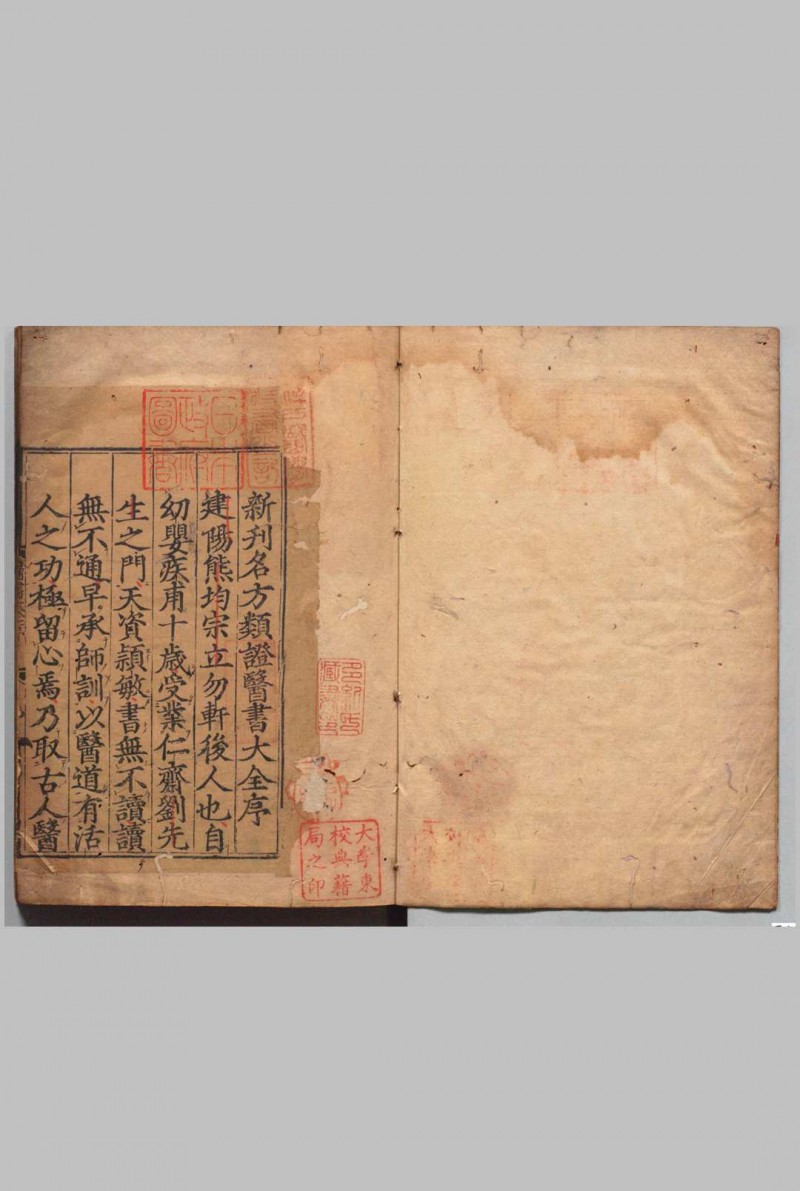 新刋名方類證醫書大全序
建陽熊均宗立勿軒後人也自
幼嬰疾甫十歲受業仁齋劉先
生之門天資頴敏書無不讀讀
無不通早承師訓以醫道有活
人之功極留心焉乃取古人醫
大學東
校典籍
局之印